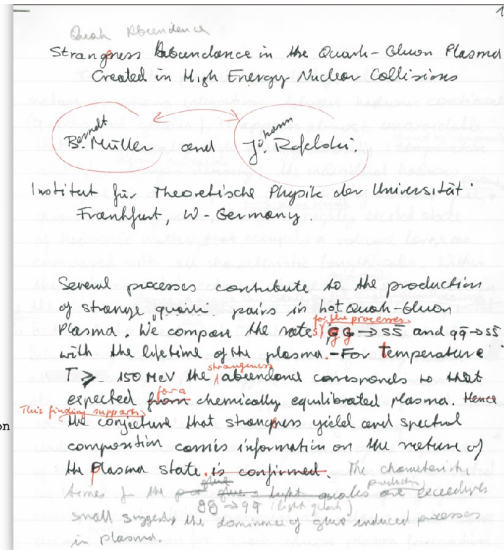 1
Quark Abundance
Strangness Abundance in the Quark-Gluon Plasma
Created in High Energy Nuclear Collisions
Berndt Müller and Johann Rafelski.
Institut für Theoretische Physik der Universität
Frankfurt, W-Germany.
Several processes contribute to the production
of strange quark pairs in hot Quark-Gluon
for the processes
Plasma. We compare the rates gg → ss̄ and qq̄ → ss̄
with the lifetime of the plasma. - For temperature
strangeness
T ≥ 150 MeV the abundance corresponds to that
for a
expected from chemically equilibrated plasma. Hence
This finding supports
the conjecture that strangness yield and spectral
on
composition carries information on the nature of
the plasma state is confirmed. The characteristic
times for the glue light quarks are exceedingly
production
gg → qq̄ (light quark)
small suggesting the dominance of glue induced processes
in plasma.